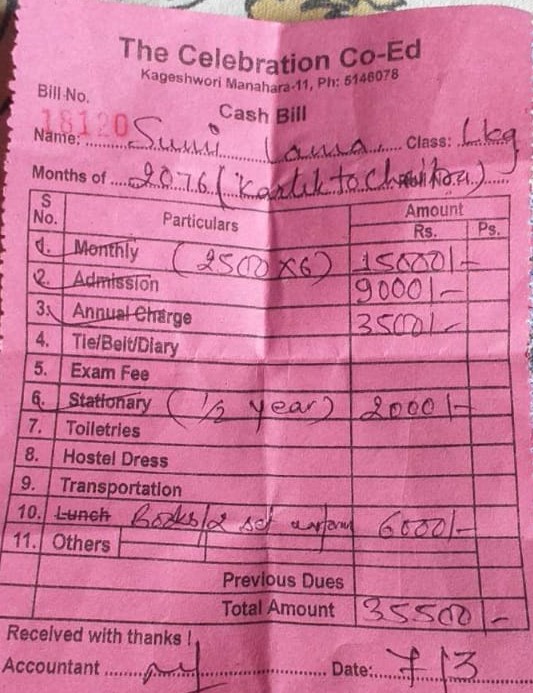 The Celebration Co-Ed
Kageshwori Manahara-11, Ph: 5146078
Bill No.
18120
Cash Bill
Name: Class: Lkg
Months of 2076 (Kartik to Chaitra)
S No. Particulars Amount
Rs. Ps.
1. Monthly (2500x6) 15000/-
2. Admission 9000/-
3. Annual Charge 3500/-
4. Tie/Belt/Diary
5. Exam Fee
6. Stationary (1/2 year) 2000/-
7. Toiletries
8. Hostel Dress
9. Transportation
10. Lunch Books/2 set 6000/-
11. Others
Previous Dues
Total Amount 35500/-
Received with thanks !
Accountant Date: 7/3